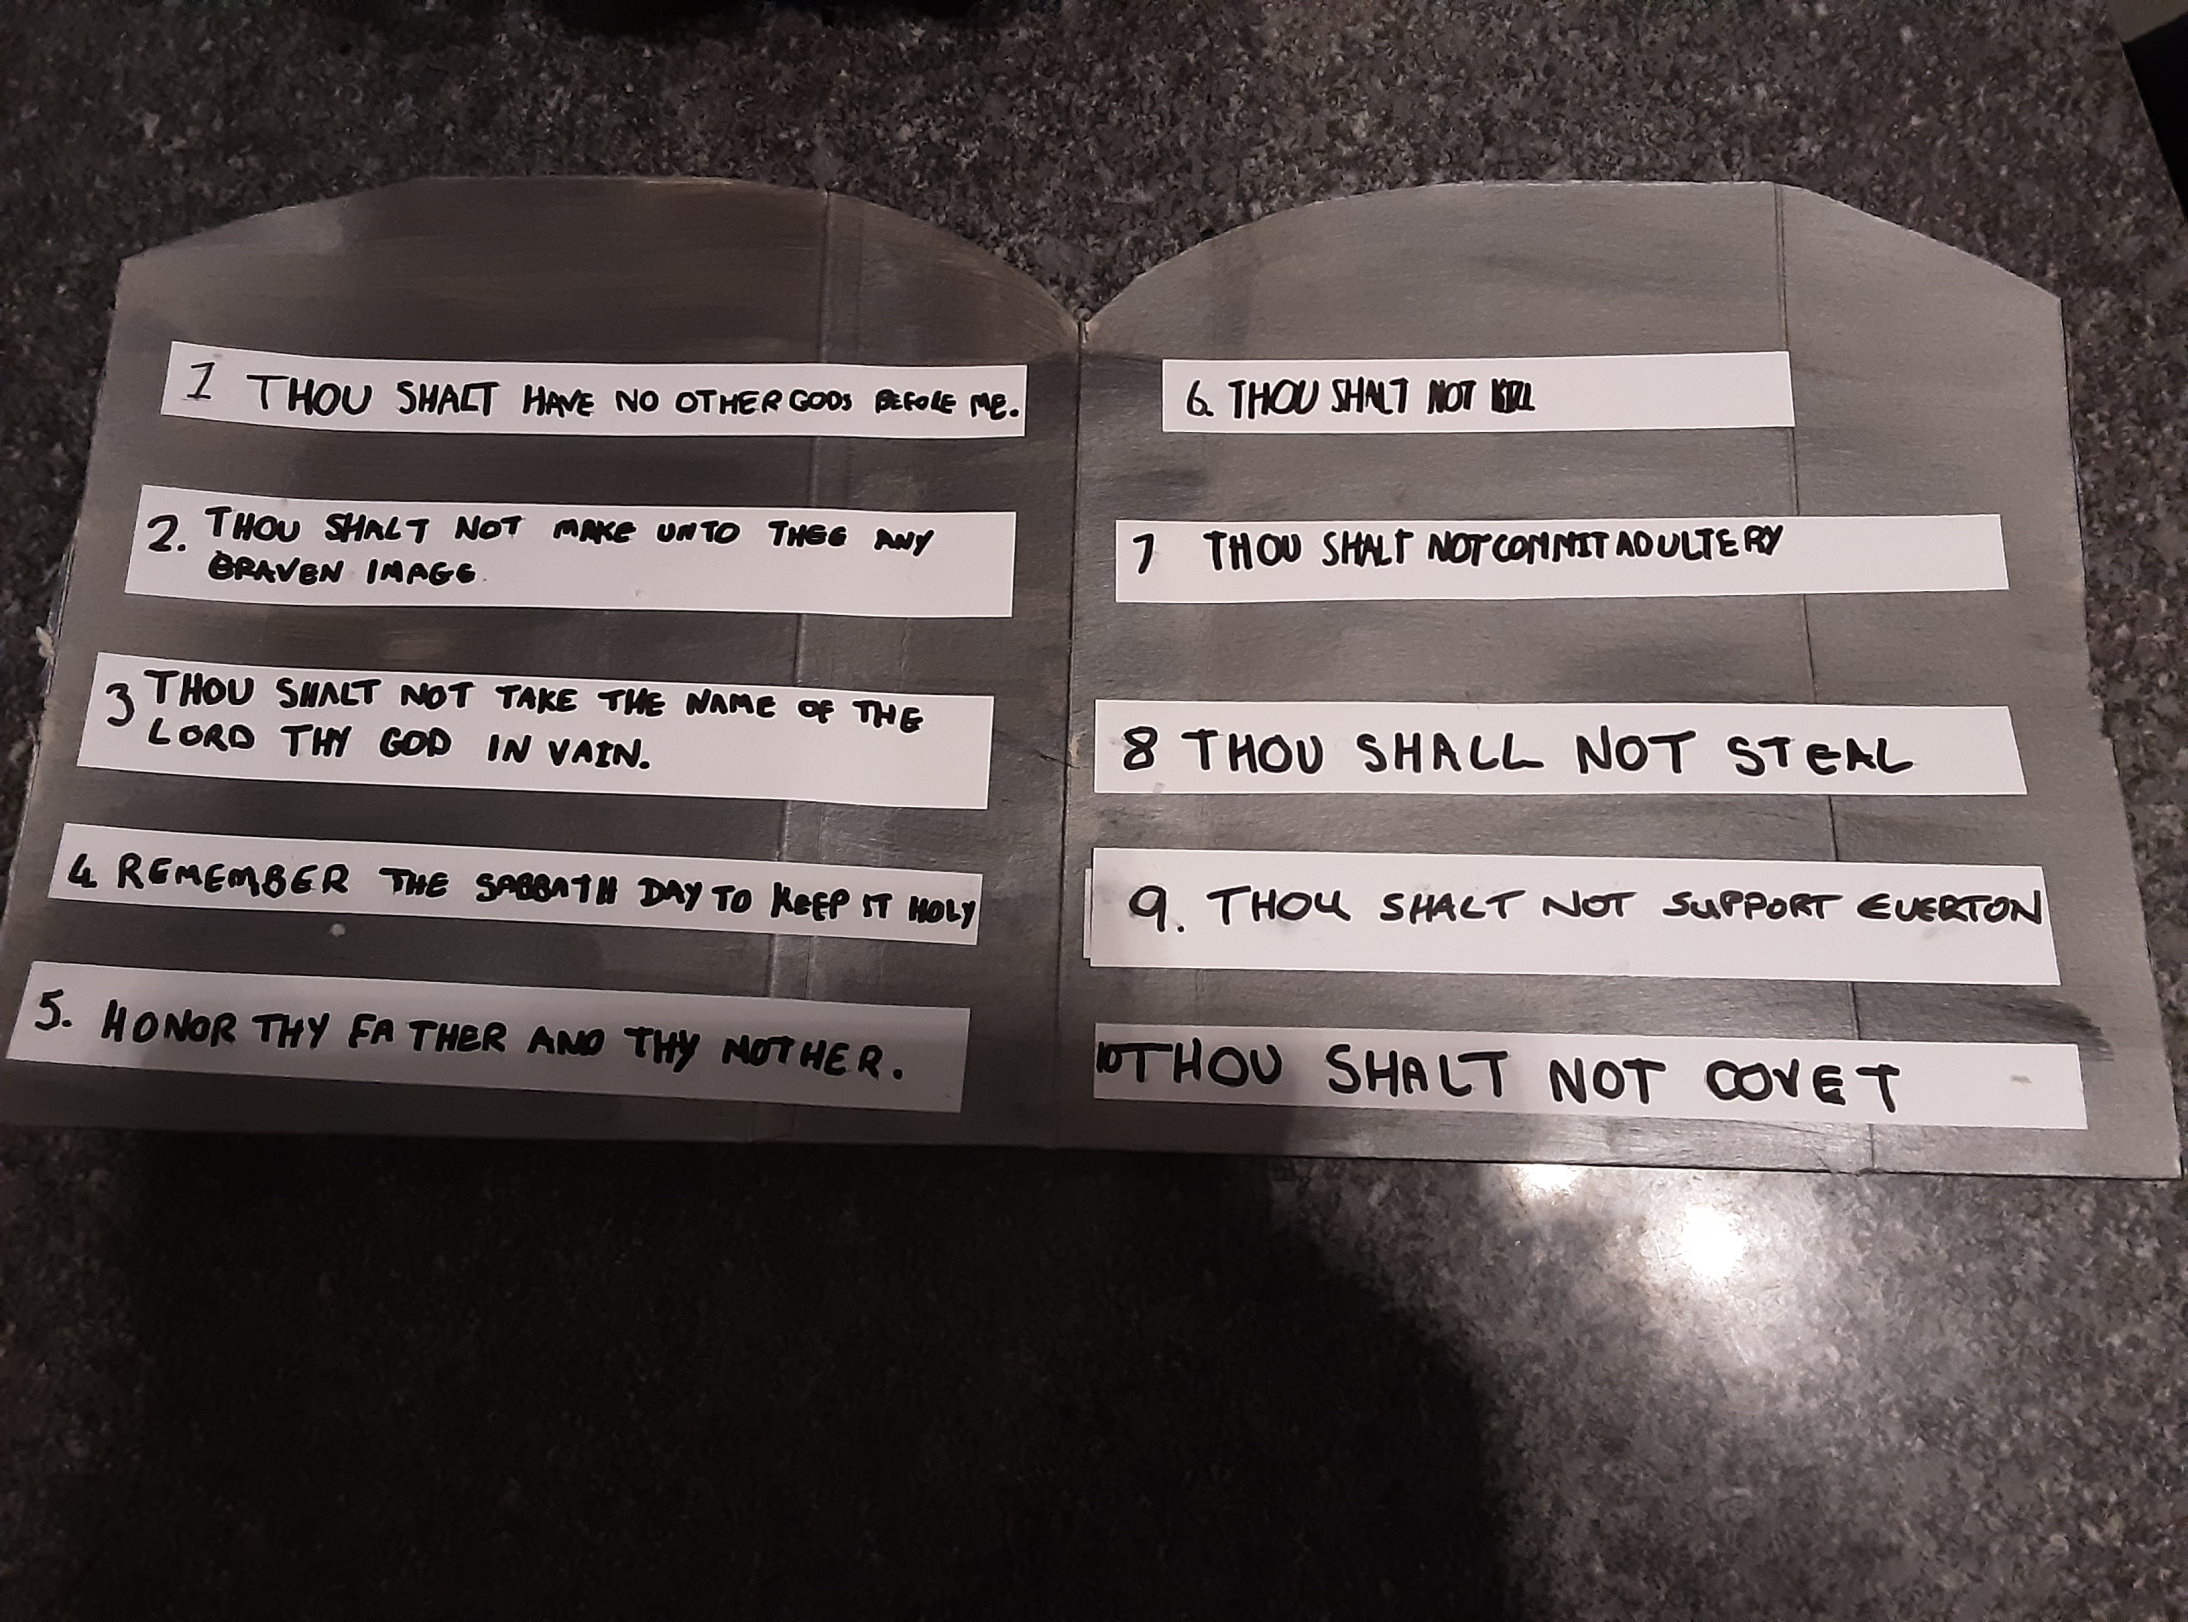 1 THOU SHALT HAVE NO OTHER GODS BEFORE ME.
2. THOU SHALT NOT MAKE UNTO THEE ANY
GRAVEN IMAGE
3 THOU SHALT NOT TAKE THE NAME OF THE
LORD THY GOD IN VAIN.
4 REMEMBER THE SABBATH DAY TO KEEP IT HOLY
5. HONOR THY FATHER AND THY MOTHER.
6. THOU SHALT NOT KILL
7 THOU SHALT NOT COMMIT ADULTERY
8 THOU SHALL NOT STEAL
9. THOU SHALT NOT SUPPORT EVERTON
10 THOU SHALT NOT COVET